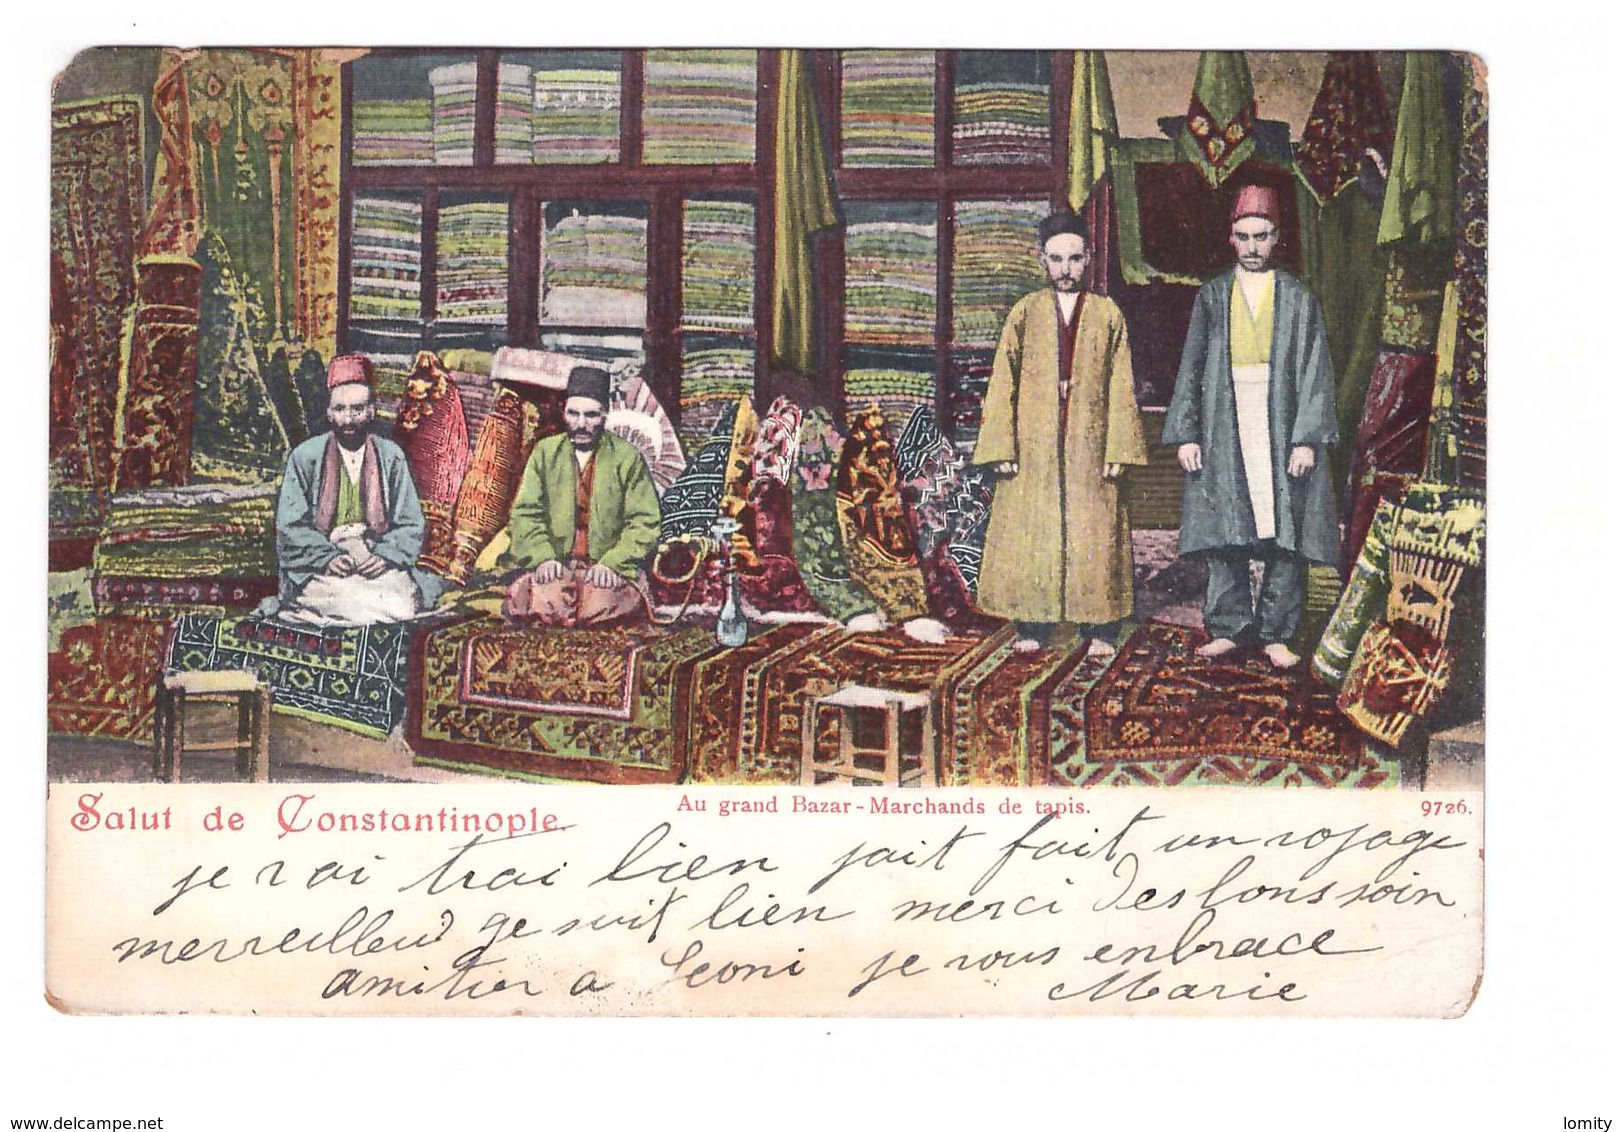 Salut de Constantinople.
Au grand Bazar - Marchands de tapis.
9726.
je vai trai bien jait fait un voyage
merveilleus ge suit bien merci des bons soin
amitier a Leoni je vous enbrace
Marie
www.delcampe.net
lomity